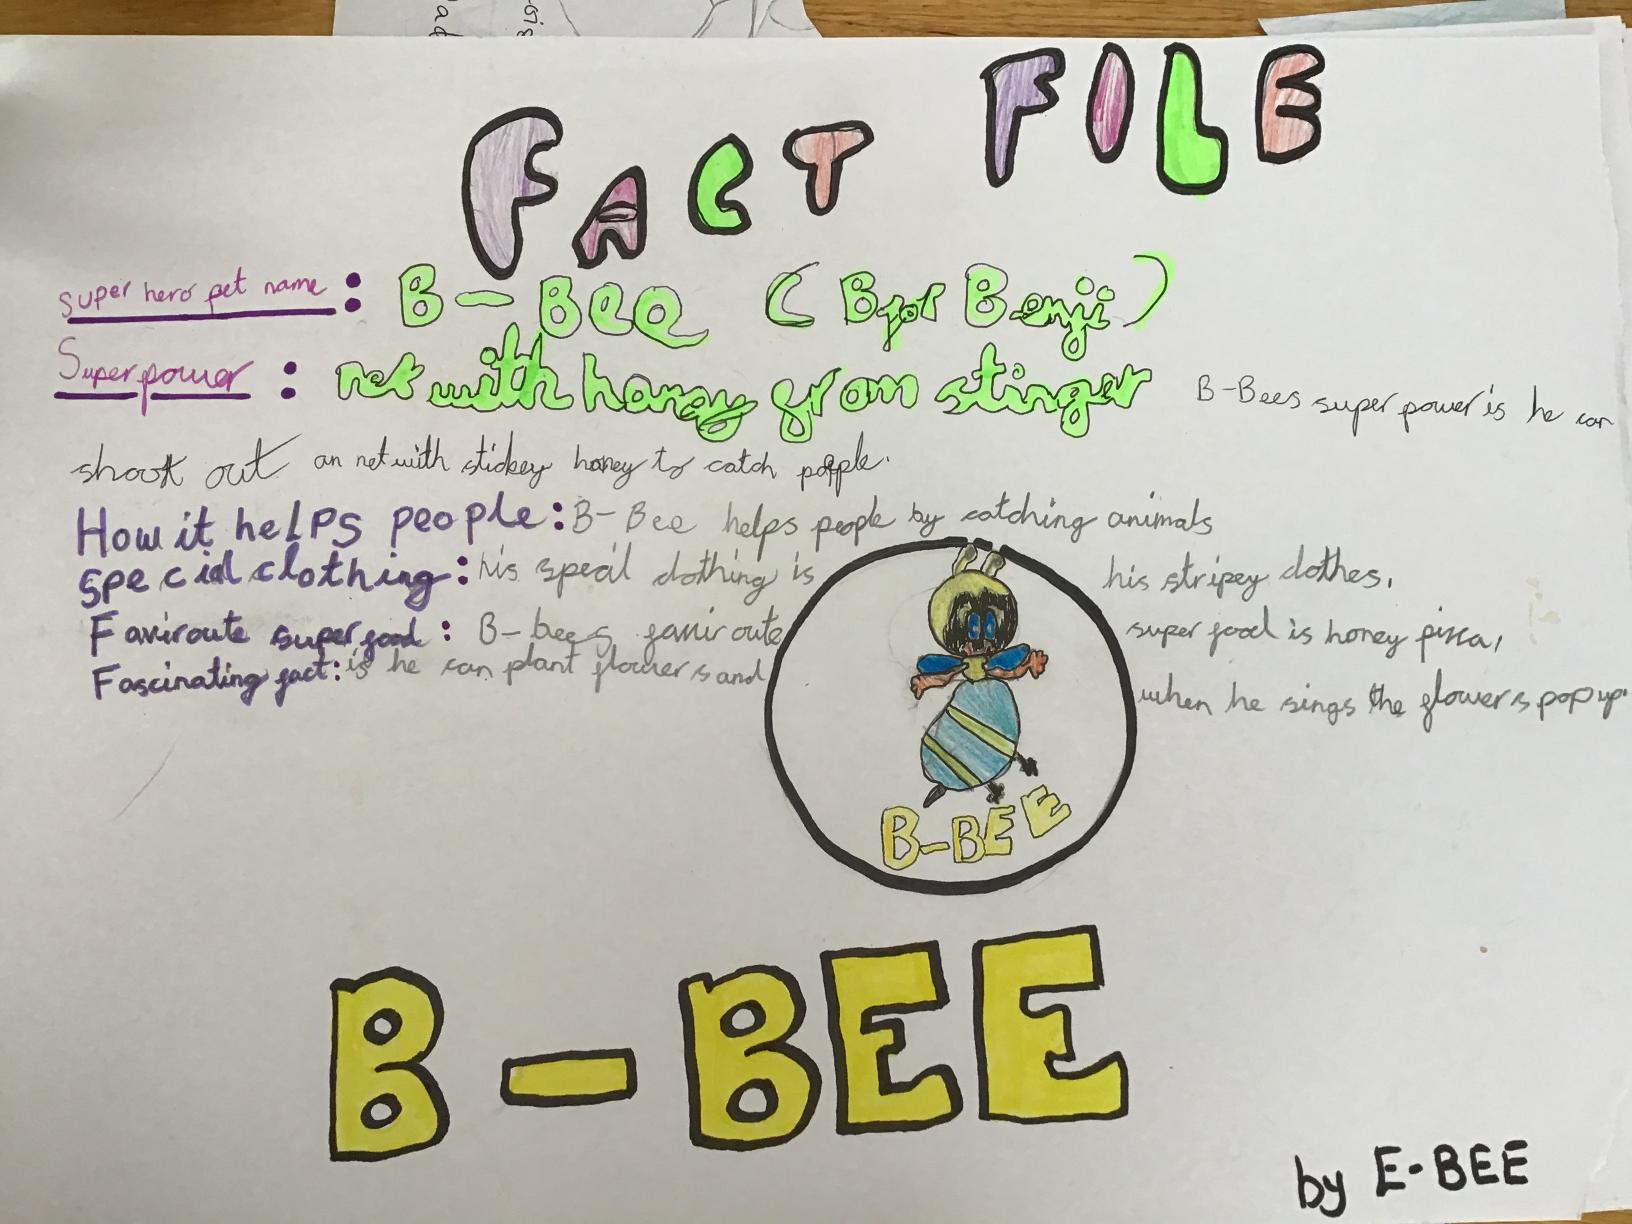 FACT FILE
Super hero pet name: B-Bee (B for Benji)
Super power: net with honey from stinger B-Bees super power is he can
shoot out an net with stickey honey to catch people.
How it helps people: B-Bee helps people by catching animals
special clothing: his speail clothing is his stripey clothes.
Faviroute super food: B-bees faviroute super food is honey pizza,
Fascinating fact: is he can plant flowers and when he sings the flowers pop up.
B-BEE
B-BEE
by E-BEE